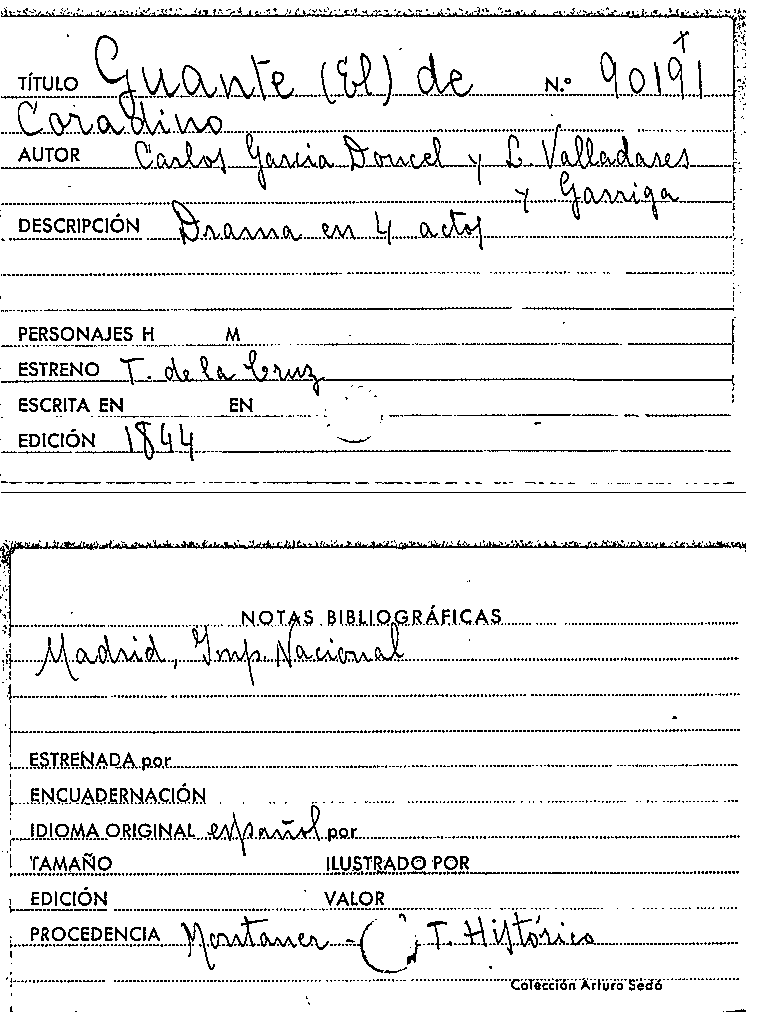 TÍTULO Guante (El) de N.º 90191
Coradino
AUTOR Carlos García Doncel y L. Valladares
y Garriga
DESCRIPCIÓN Drama en 4 actos
PERSONAJES H M
ESTRENO T. de la Cruz
ESCRITA EN EN
EDICIÓN 1844
NOTAS BIBLIOGRÁFICAS
Madrid, Imp. Nacional
ESTRENADA por
ENCUADERNACIÓN
IDIOMA ORIGINAL español por
TAMAÑO ILUSTRADO POR
EDICIÓN VALOR
PROCEDENCIA Montaner - T. Histórico
Colección Arturo Sedó